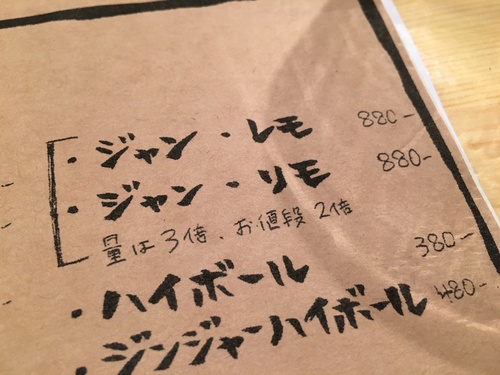 ・ジャン・レモ 880-
・ジャン・リモ 880-
量は3倍、お値段2倍
・ハイボール 380-
・ジンジャーハイボール 480-